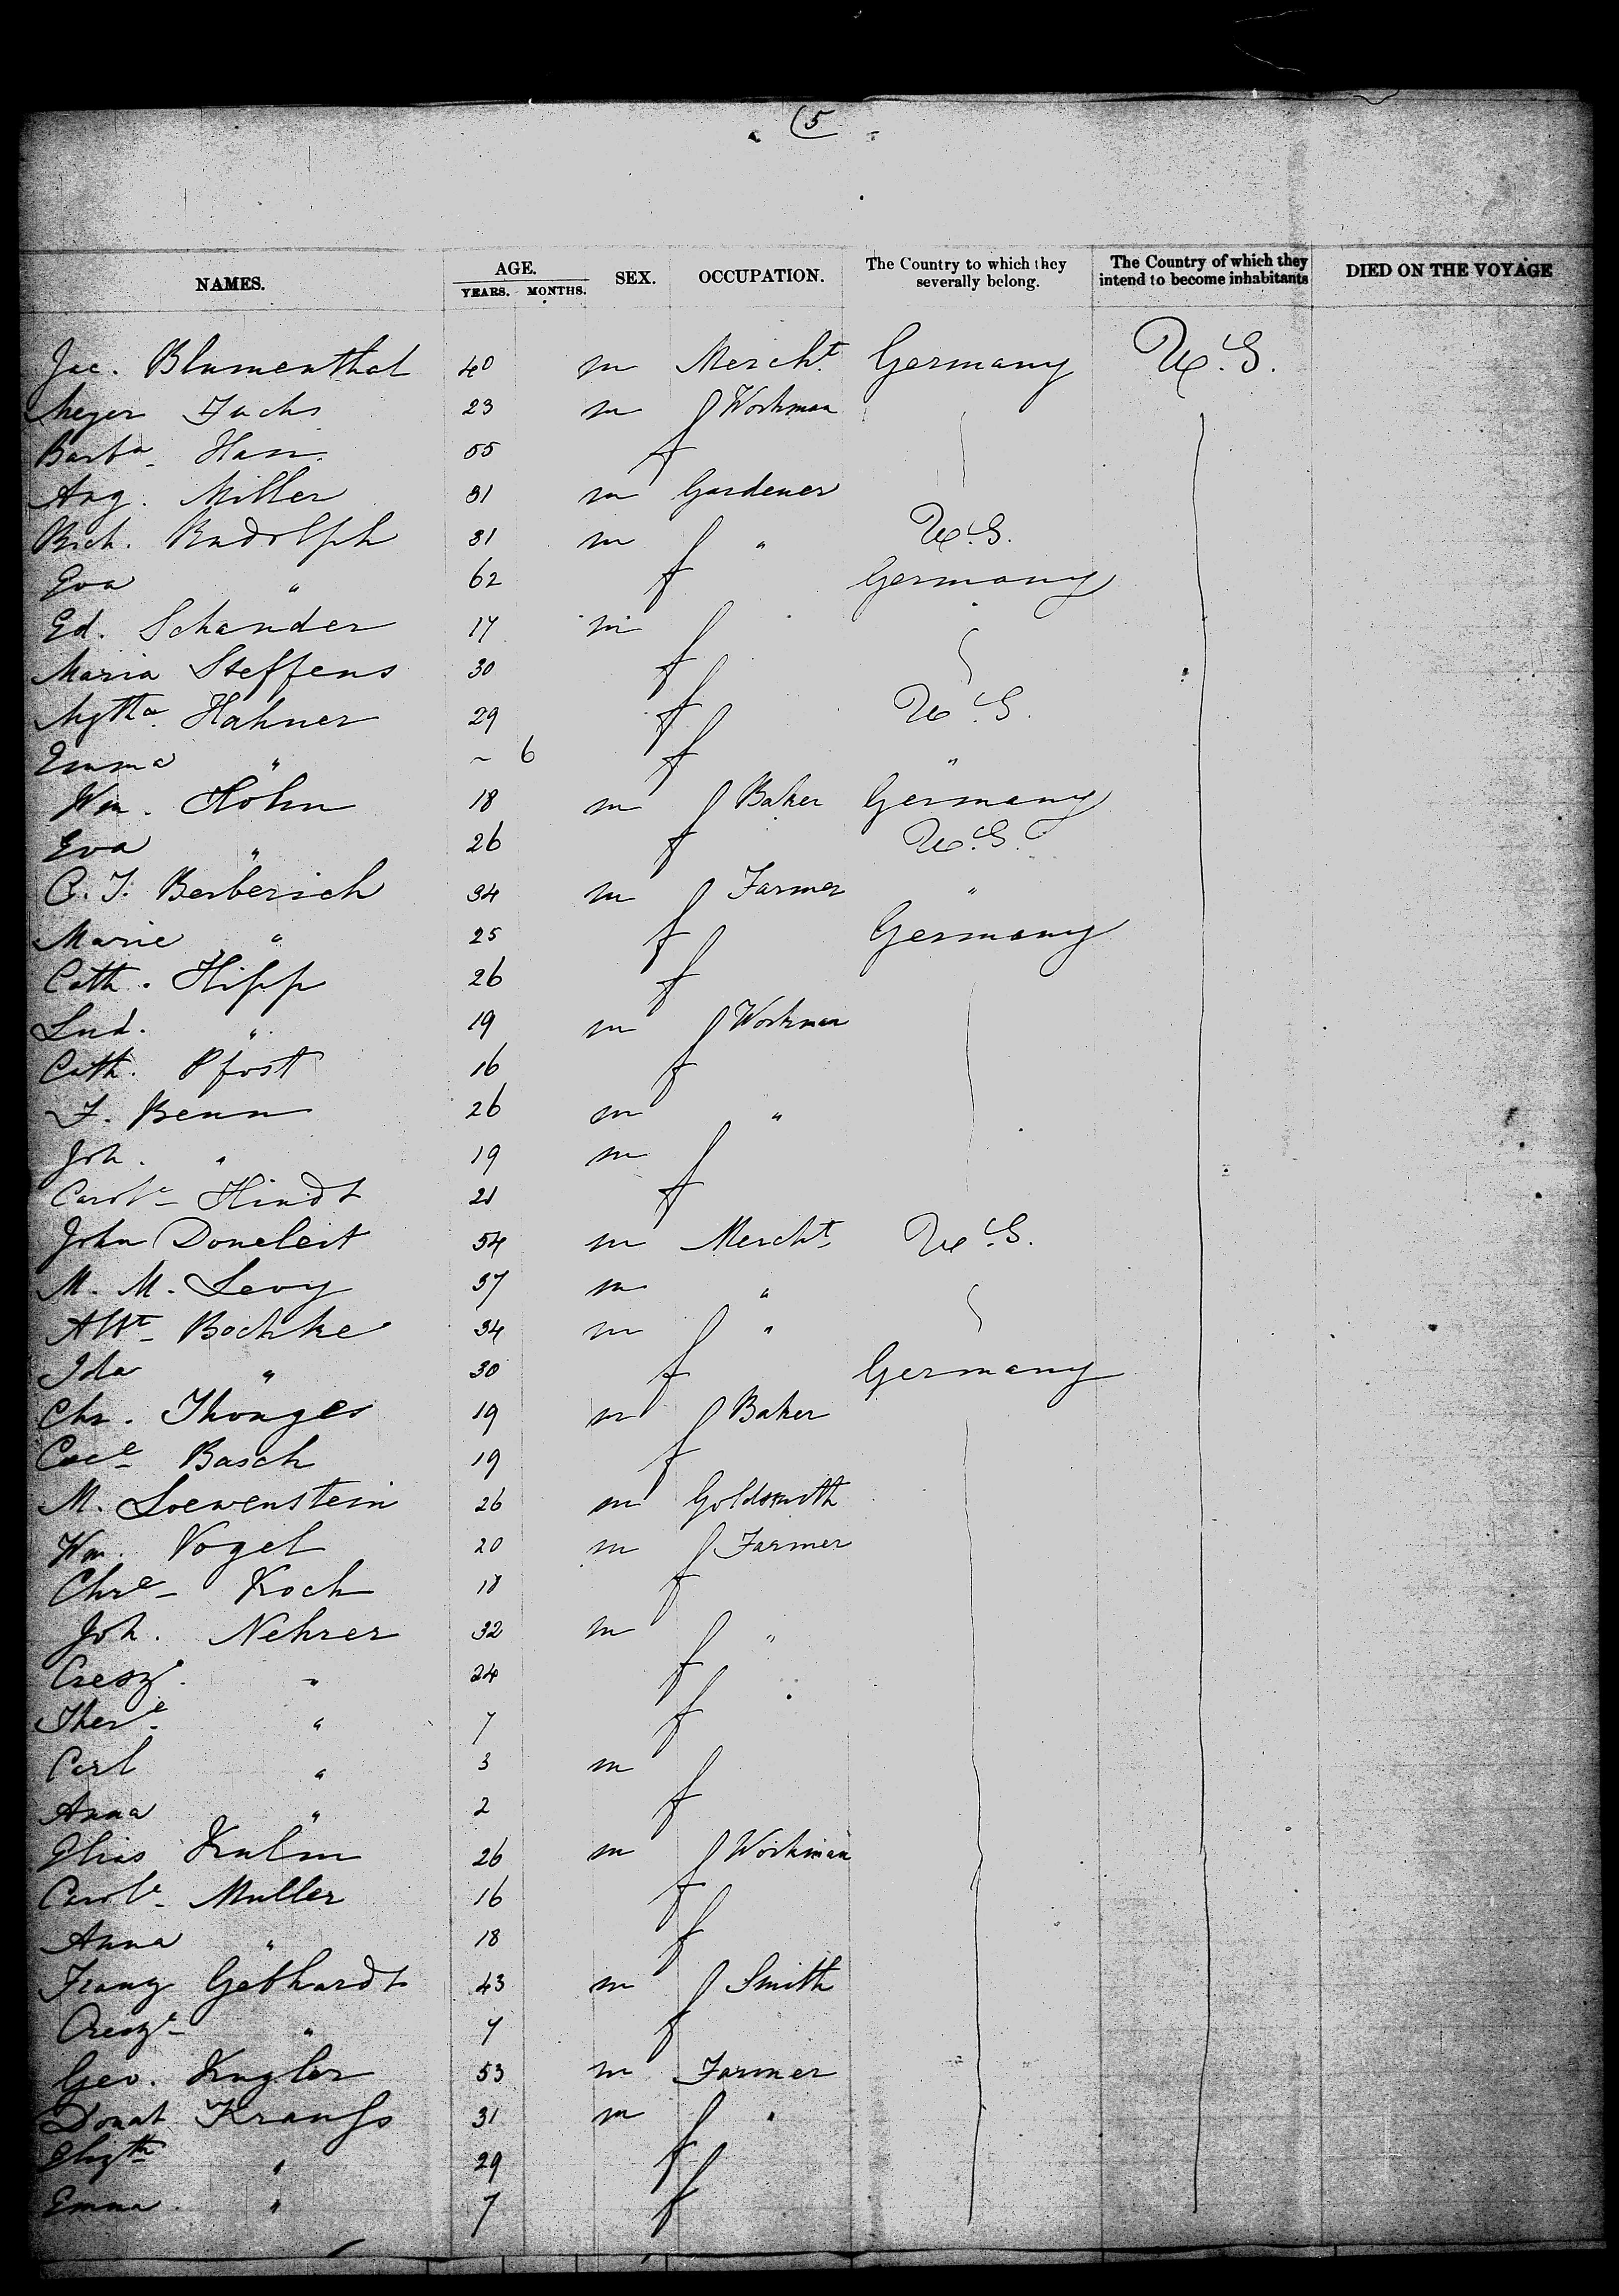 (5
NAMES. AGE. YEARS. MONTHS. SEX. OCCUPATION. The Country to which they severally belong. The Country of which they intend to become inhabitants DIED ON THE VOYAGE
Jac. Blumenthal 40 m Mercht. Germany U.S.
Meyer Fuchs 23 m Workman
Barba. 55 f
Aug. Miller 31 m Gardener
Rich. Rudolph 31 m " U.S.
Eva " 62 f Germany
Ed. Schander 17 m
Maria Steffens 30 f
Mgtha. Hahner 29 f U.S.
Emma " ~ 6 f "
Wm. Höhn 18 m Baker Germany
Eva " 26 f U.S.
C. J. Berberich 34 m Farmer "
Marie " 25 f Germany
Cath. Hipp 26 f
Lud. " 19 m Workman
Cath. Pfost 16 f
F. Benn 26 m "
Joh. " 19 m
Carole Hindt 21 f
John Doneleit 54 m Mercht. U.S.
M. M. Levy 37 m "
Albt. Bochke 34 m "
Ida " 30 f Germany
Chr. Thonges 19 m Baker
Cace. Basch 19 f
M. Loewenstein 26 m Goldsmith
Wm. Vogel 20 m Farmer
Chre. Koch 18 f
Joh. Nehrer 32 m "
Cresze. " 24 f
There. " 7 f
Carl " 3 m
Anna " 2 f
Elias Kulm 26 m Workman
Carole Muller 16 f
Anna " 18 f
Franz Gebhardt 43 m Smith
Cresze. " 7 f
Geo. Kugler 53 m Farmer
Donat Krauss 31 m "
Elizth " 29 f
Emma " 7 f